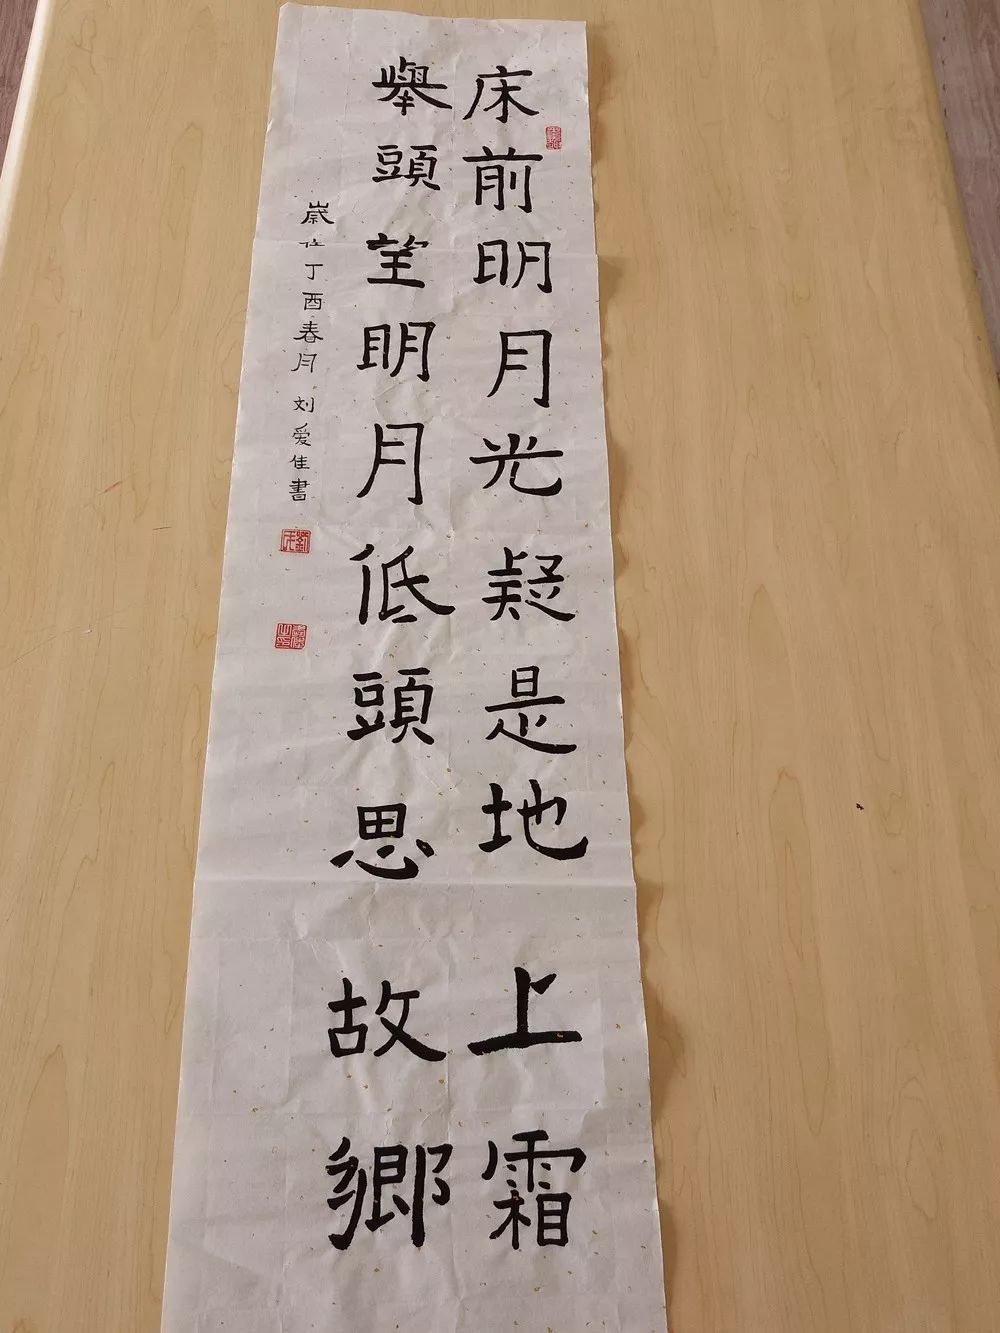 床前明月光疑是地上霜
舉頭望明月低頭思故鄉
歲在丁酉春月刘爱佳書